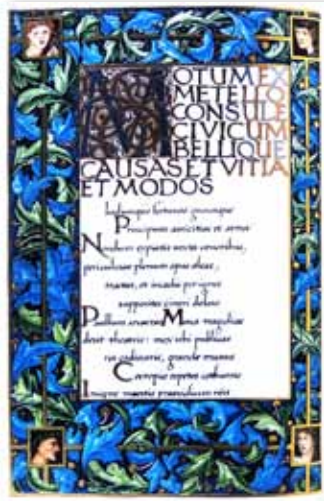 MOTUM EX
METELLO
CONSULE
CIVICUM
BELLIQUE
CAUSAS ET VITIA
ET MODOS
ludumque fortunae gravesque
Principum amicitias et arma
Nondum expiatis uncta cruoribus,
periculosae plenum opus aleae,
tractas, et incedis per ignes
suppositos cineri doloso
Paullum severae Musa tragediae
desit theatris: mox ubi publicas
res ordinaris, grande munus
Cecropio repetes cothurno
Insigne maestis praesidium reis